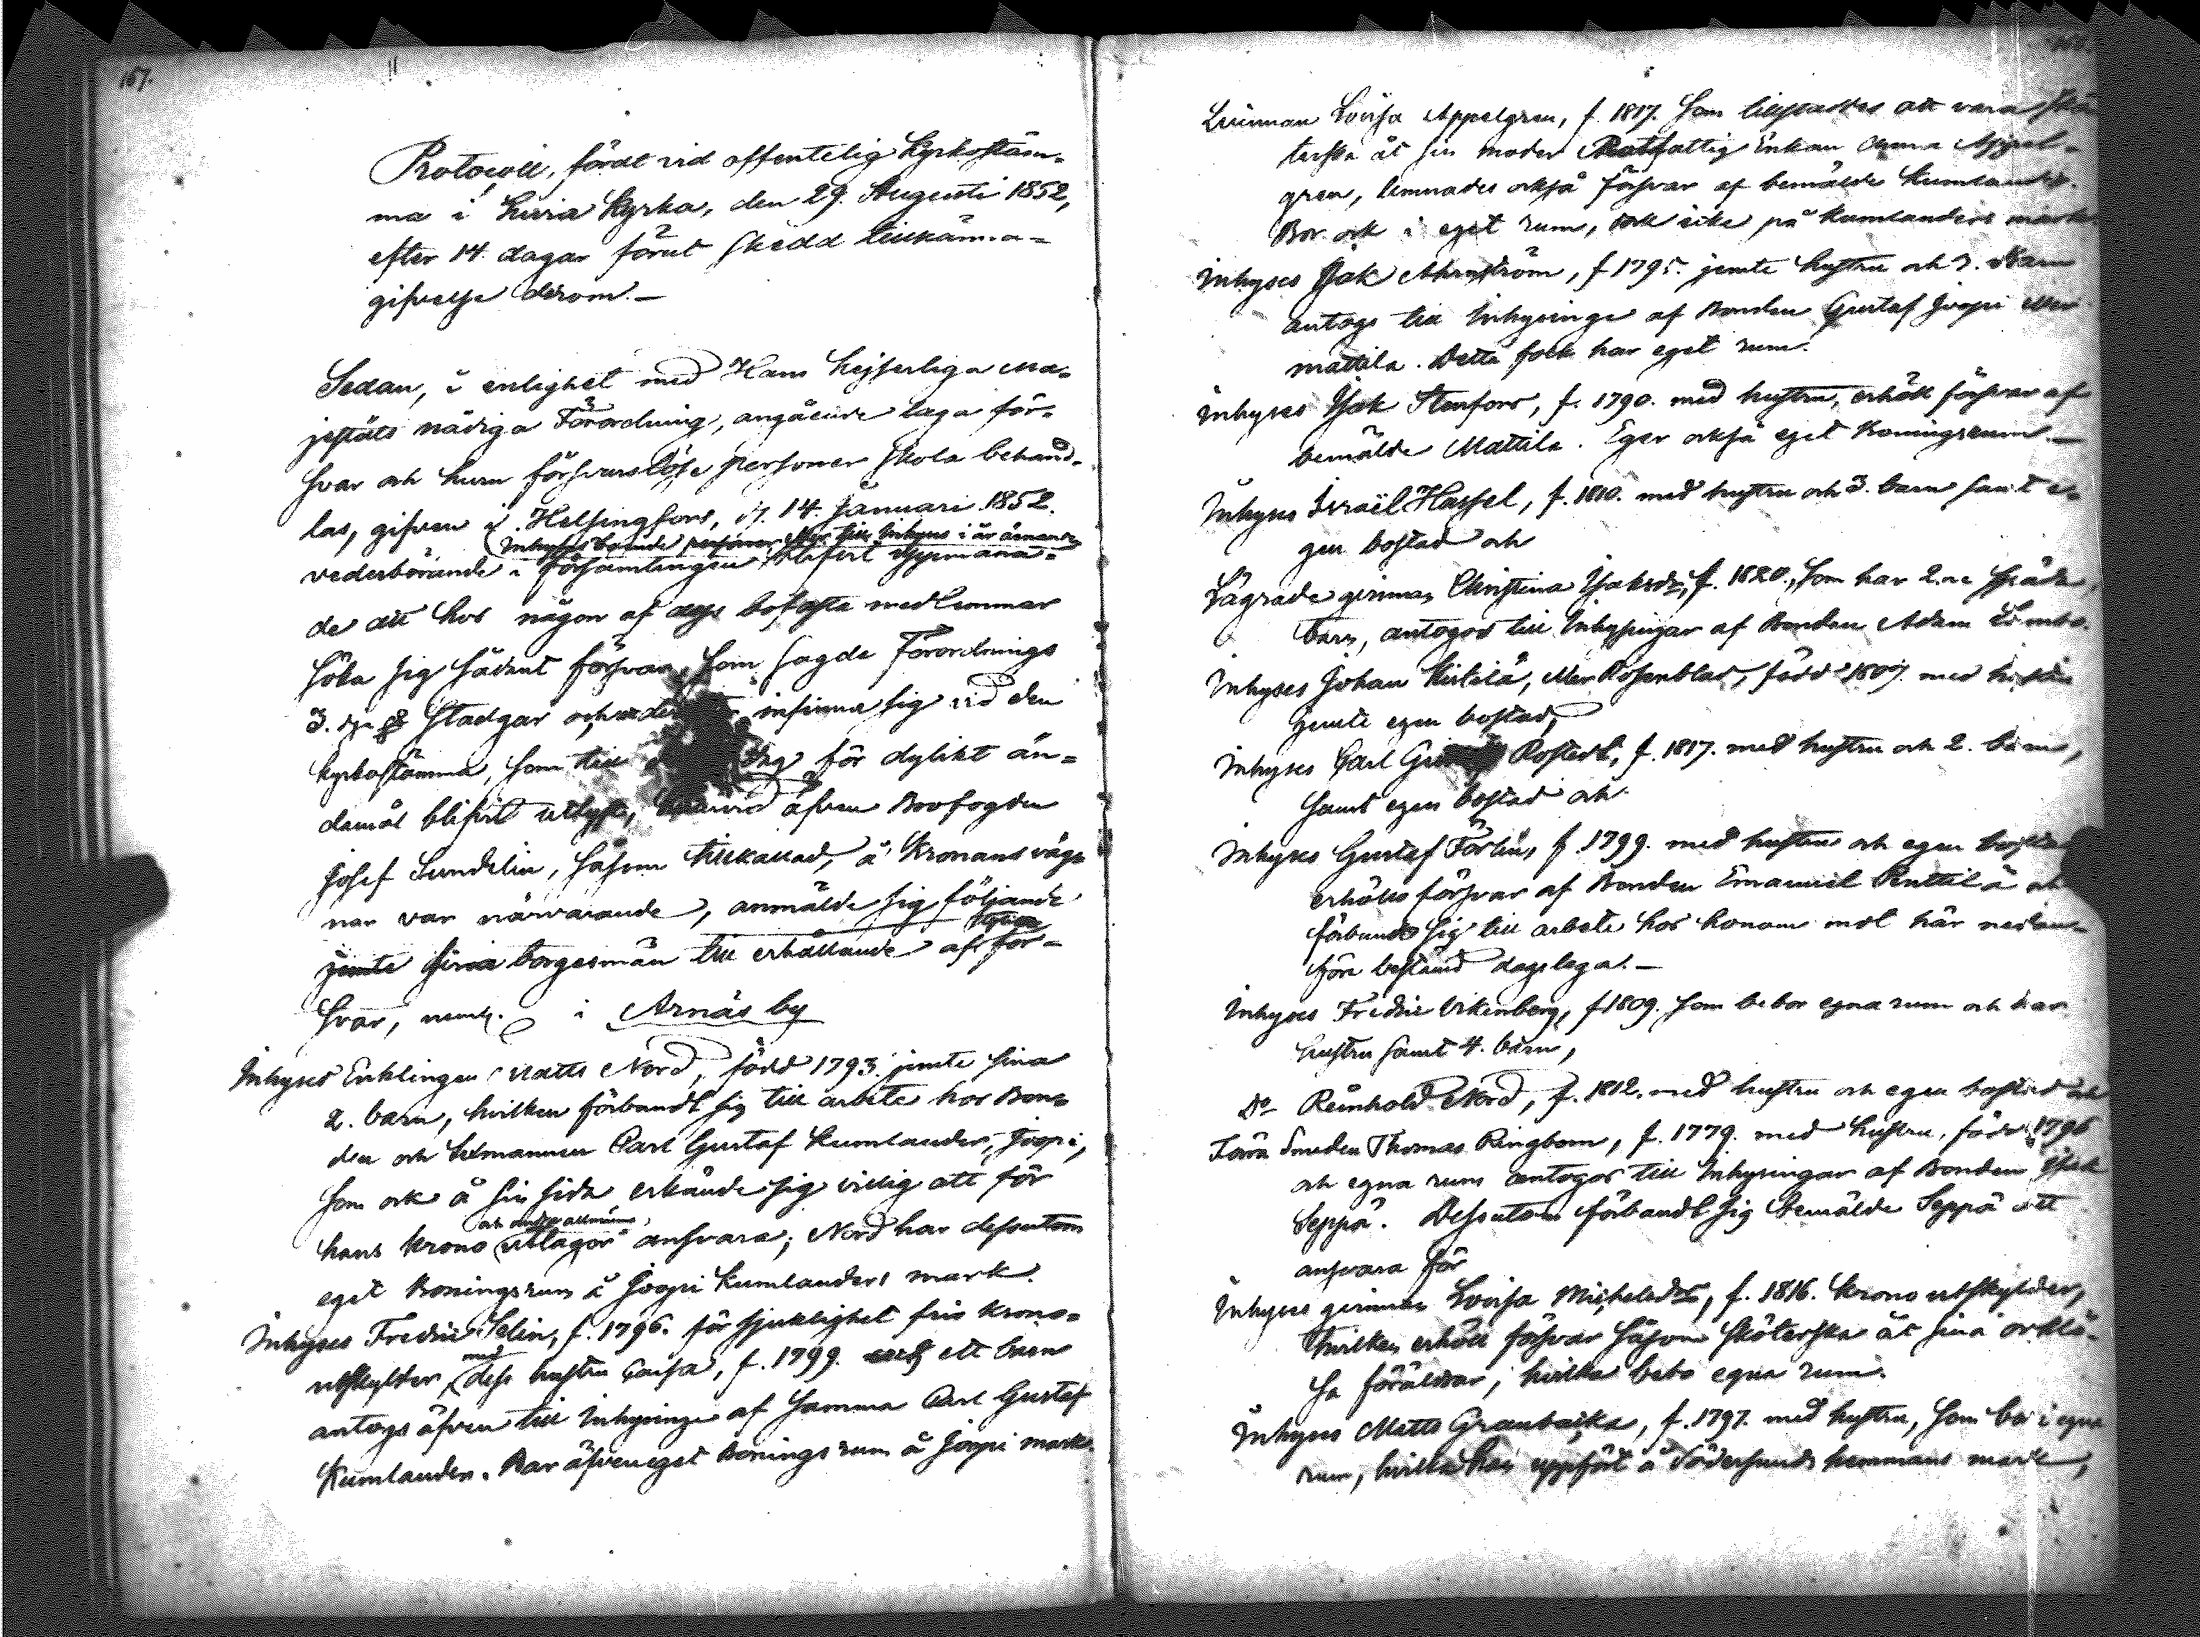 167.
Protocoll, fördt vid offentelig Kyrkostäm-
ma i Luvia Kyrka, den 29. Augusti 1852,
efter 14. dagar förut skedd tillkänna-
gifvelse derom.—
Sedan, i enlighet med Hans Kejserliga Ma-
jestäts nådiga Förordning, angående laga för-
svar och huru försvarslöse personer skola behand-
las, gifven i Helsingfors, d. 14. Januari 1852.
vederbörande i församlingen blifvit
de att hos någon af dess bofasta medlemmar
söka sig sådant försvar, som sagde Förordnings
3. dje § stadgar och infinna sig vid den
Kyrkostämma, som till dag för dylikt än-
damål blifvit utlyst, äfven Brofogden
Josef Sundelin, såsom tillkallad, å Kronans väg-
nar var närvarande, anmälde sig följande
jemte sina borgesmän till erhållande af för-
svar, neml. i Arnäs by
Inhyses Enklingen Matts Nord, född 1793. jemte sina
2. barn, hvilken förbandt sig till arbete hos Bon-
den och Carl Gustaf Kumlander, Joopi,
som ock å sin sida erkände sig villig att för
och andra allmänna
hans krono utlagor ansvara; Nord har dessutom
eget Boningsrum å Joopi Kumlanders mark.
Inhyses Fredric Selin, f. 1796. för sjuklighet fri's krono-
utskylder, med dess hustru Caisa, f. 1799. ett barn
antogs äfven till Inhysinge af samma Carl Gustaf
Kumlander. Har äfven eget Bonings rum å Joopi mark.
Qvinnan Lovisa Appelgren, f. 1817. som tillstaddes att vara skö-
terska åt sin moder Rotfattig Enkan Anna Appel-
gren, lemnades också försvar af bemälde Kumlander.
Bor ock i eget rum, ock icke på Kumlanders mark
Inhyses Isak Ahrnström, f 1795. jemte hustru och barn
antogs till Inhysinge af Bonden Gustaf Joopi
mattila. Detta folk har eget rum.
Inhyses Isak Stenfors, f. 1790. med hustru, erhöll försvar af
bemälde Mattila. Eger också eget Boningsrum.—
Inhyses Israël Hassel, f. 1810. med hustru och 3. barn samt e-
gen bostad och
Lägrade qvinnan Christina Isaksdr, f. 1820., som har 2.ne späda
barn, antogos till Inhysingar af Bonden Adam
Inhyses Johan Rosenblad, född 1807. med hustru
jemte egen bostad,
Inhyses Carl Rostedt, f. 1817. med hustru och 2. barn,
samt egen bostad och
Inhyses Gustaf Förlin, f. 1799. med hustru och egen bostad
erhöllo försvar af Bonden Emanuel Penttilä och
förbundo sig till arbete hos honom mot här nedan-
före bestämd dagslega.—
Inhyses Fredric Vikenberg, f 1809. som bebor egna rum och har
hustru samt 4. barn,
Do Reinhold Nord, f. 1812. med hustru och egen bostad och
Smeden Thomas Ringbom, f. 1779. med hustru, född 1796
och egna rum antogos till Inhysingar af Bonden Isak
Seppä. Dessutom förbandt sig bemälde Seppä att
ansvara för
Inhyses qvinnan Lovisa Michelsdr, f. 1816. Krono utskylder,
hvilken erhöll försvar såsom sköterska åt sina orklö-
sa föräldrar, hvilka bebo egna rum.
Inhyses Matts Granbacka, f. 1797. med hustru, som bor i egna
rum, hvilka han uppfört å Södersunds hemmans mark,